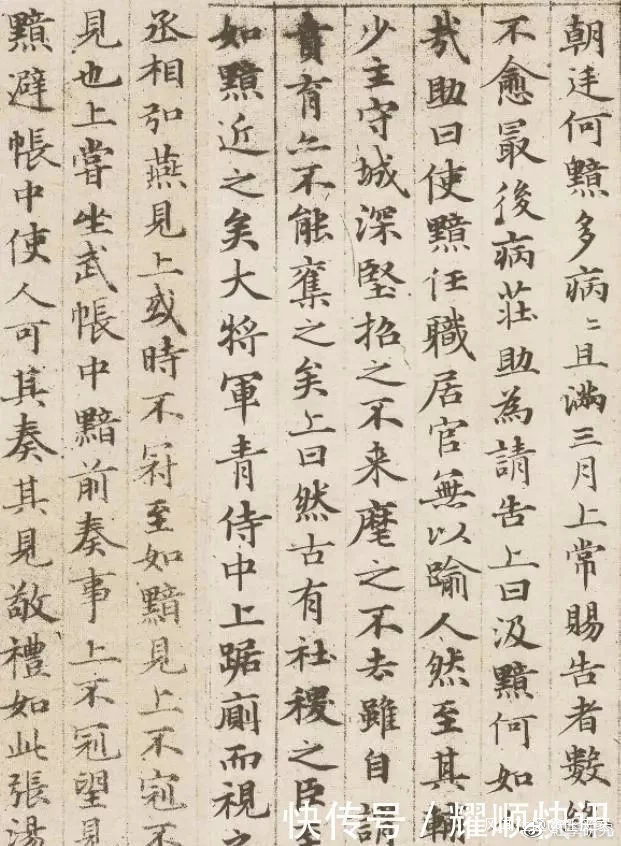 朝廷何黯多病〻且滿三月上常賜告者數
不愈最後病莊助為請告上曰汲黯何如
哉助曰使黯任職居官無以踰人然至其輔
少主守城深堅招之不来麾之不去雖自謂
賁育亦不能奪之矣上曰然古有社稷之臣至
如黯近之矣大將軍青侍中上踞廁而視之
丞相弘燕見上或時不冠至如黯見上不冠不
見也上嘗坐武帳中黯前奏事上不冠望見
黯避帳中使人可其奏其見敬禮如此張湯
快传号 / 耀顺快讯